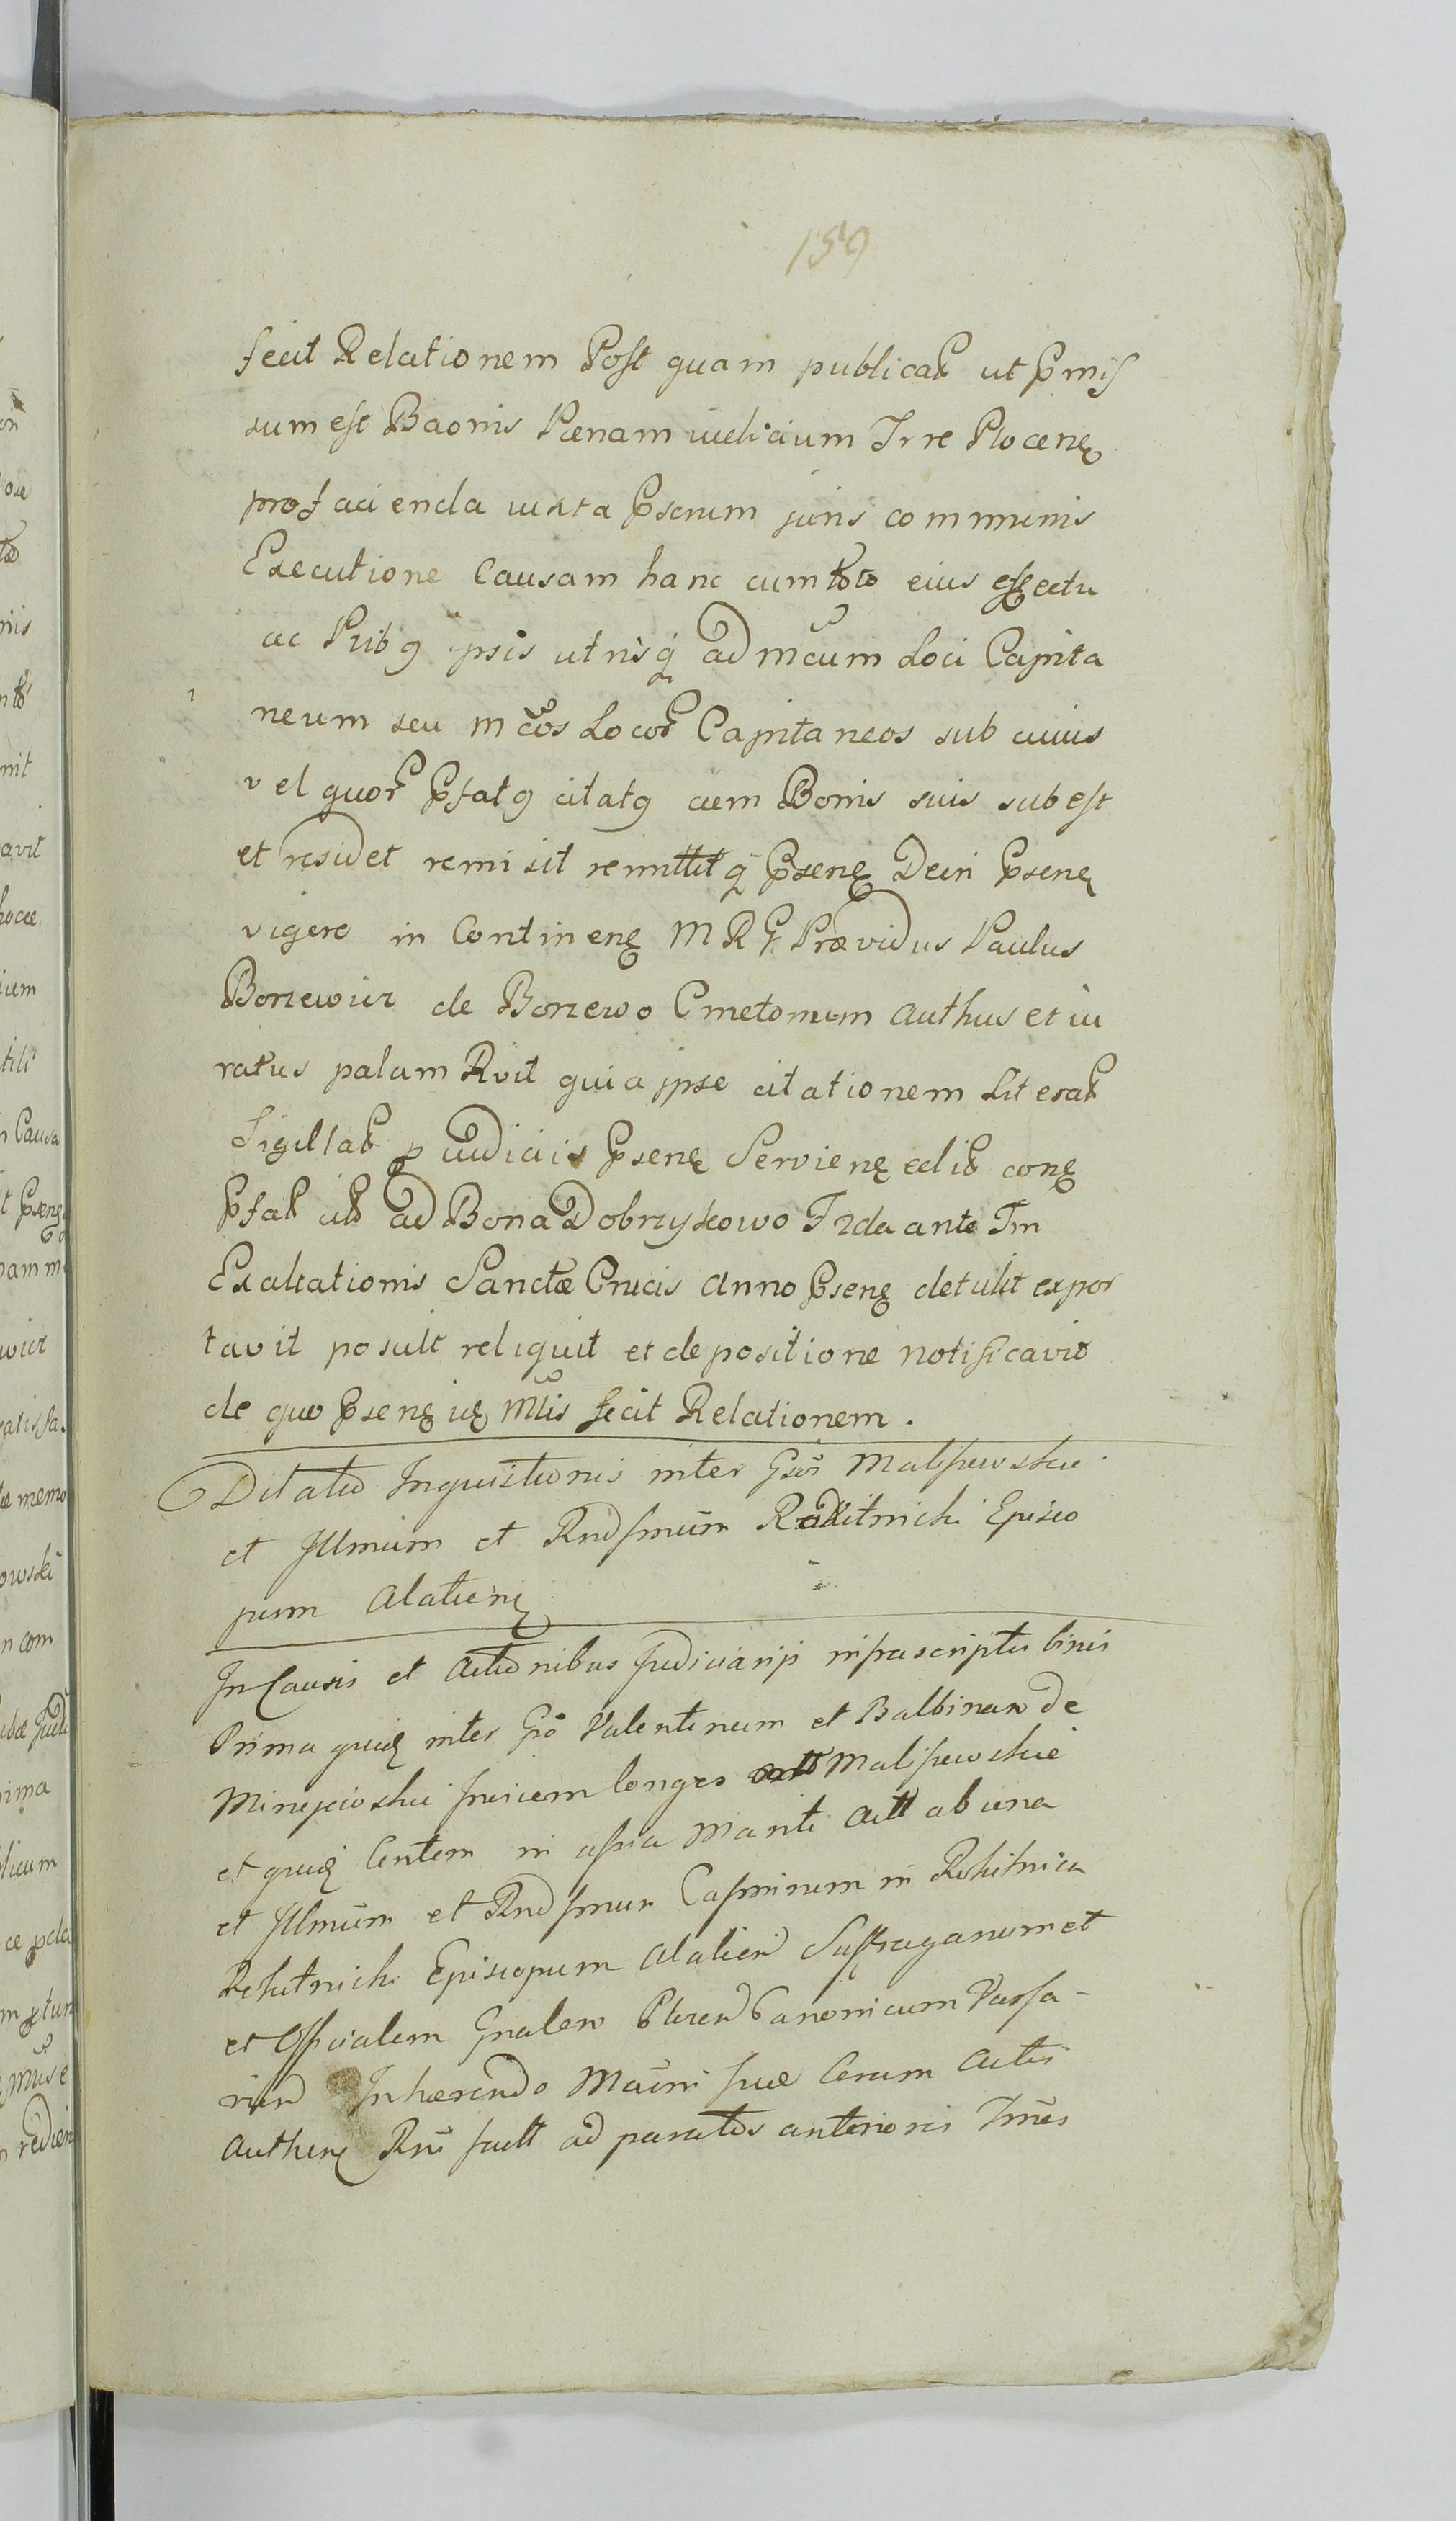 159
fecit Relationem Post quam publicat ut pmis
sum est Baonis Pænam iudicium Trre Plocenę
pro facienda iuxta pscrium juris communis
Executione Causam hanc cum toto eius effectu
ac Ptib9 ipsis utrisq ad mcum Loci Capita
neum seu mcos Locor Capitaneos sub cuius
vel quor pfat9 citat9 cum Bonis suis subest
et residet remisit remittitq psenę Decri psenę
vigore in Continenę MRG Providus Paulus
Borzewicz de Borzewo Cmetonum Authus et iu
ratus palam Rvit quia ipse citationem Literat
Sigillat p iudiciis psenę Servienę edit conę
pfat cit ad Bona Dobrzykowo Frda ante Tm
Exaltationis Sanctæ Crucis Anno psenę detulit expor
tavit posuit reliquit et de positione notificavit
de quo psenę iuę Mtis fecit Relationem.
Dilatio Inquisitionis inter Gsos Malisewskie
et Illmum et Rndsmum Rokitnicki Episco
pum Alatienę
In Causis et Actionibus Judiciarijs infrascriptis binis
Prima quidę inter Gso Valentinum et Balbinam de
Miszeiewskie Malisewskie
et quidę Contem in assia Mariti Act ab una
et Illmum et Rndsmum Casmirum in Rokitnica
Rokitnicki Episcopum Alatien Suffraganeum et
et Officialem Gnalem Plocen Canonicum Varsa-
vien Inhærendo Mauni suæ Coram Actis
Authenę Rni factt ad paratos anterioris Tmis